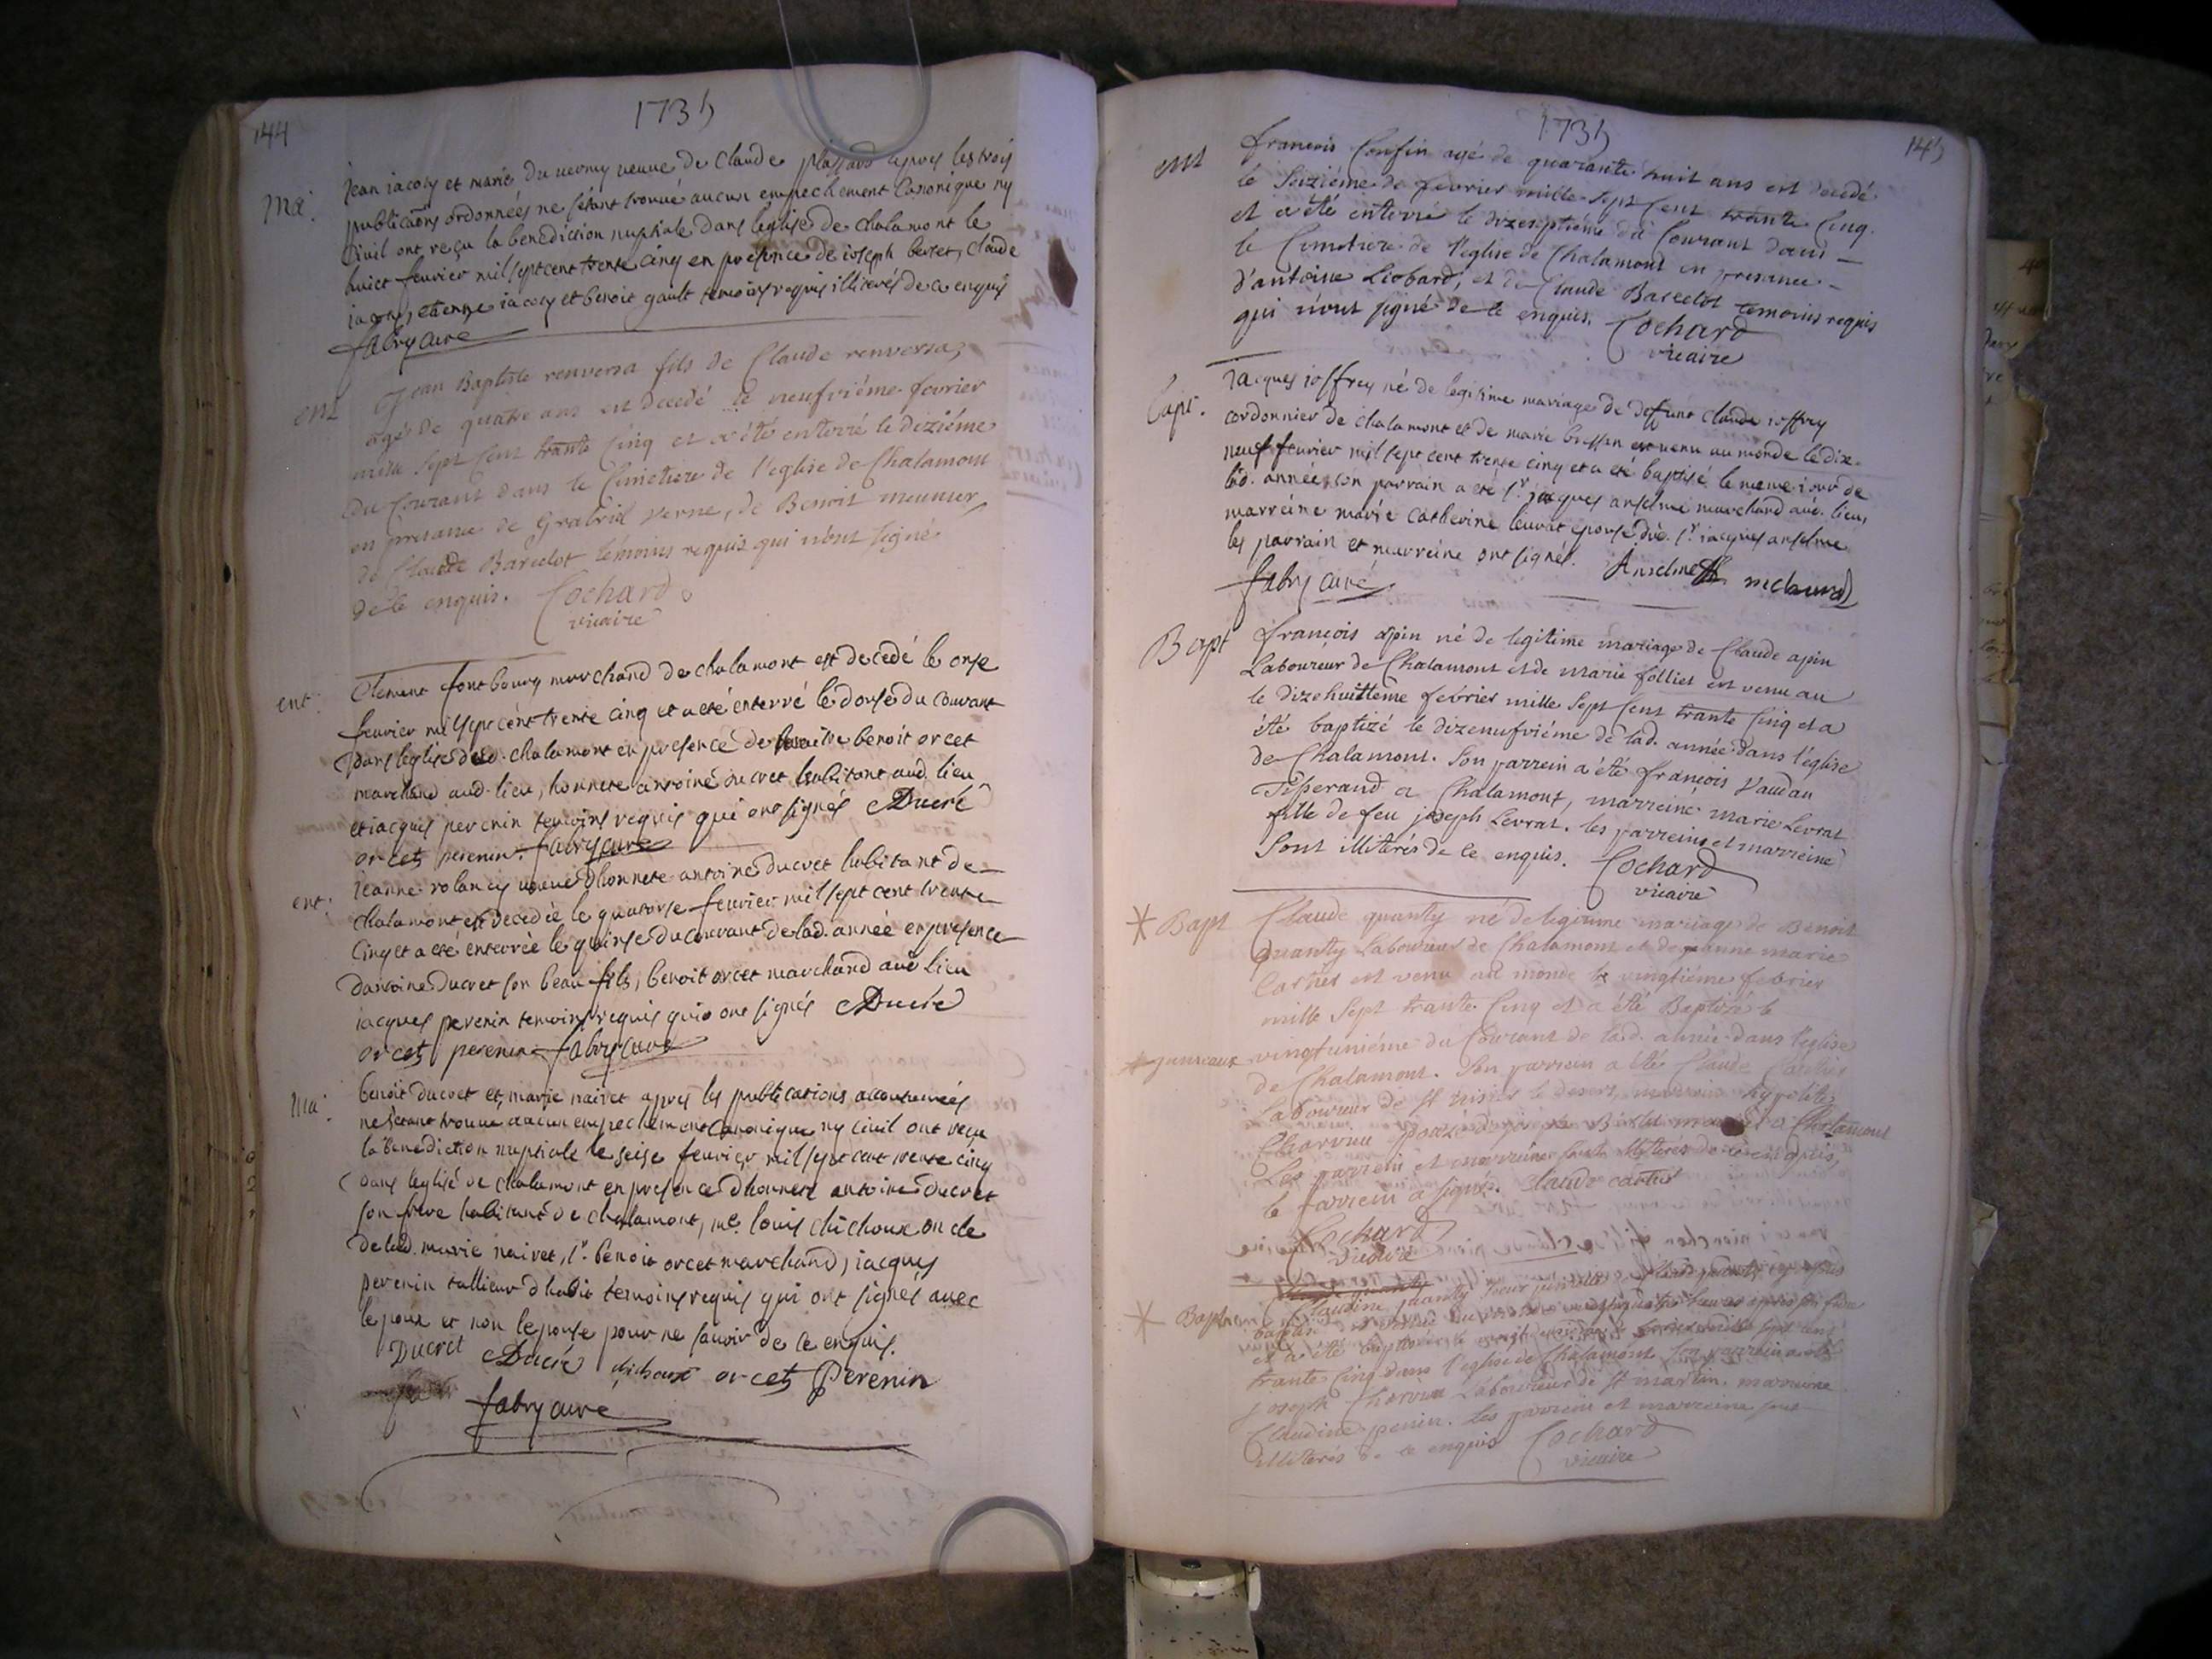 144
1735
ma:
jean iacoly et marie du uernay ueuue de Claude plassard apres les trois
publications ordonnées ne sétant trouué aucun empechement Canonique ny
Ciuil ont reçu la benediction nuptiale dans léglise de chalamont le
huict feurier mil sept cent trente cinq en presence de ioseph bertet, claude
etienne iacoly et benoit gault temoins requis illiterés de ce enquis
fabry curé
ent
Jean Baptiste renversa fils de Claude renversa,
agé de quatre ans est decedé le neufviéme fevrier
mille sept Cent trante Cinq et a été enterré le diziéme
du Courant dans le Cimetiere de l'eglise de Chalamont
en présance de Grabriel verne, de Benoit meunier,
de Claude Barcelot témoins requis qui n'ont signé
de ce enquis. Cochard
vicaire
ent:
Clement fontbourg marchand de chalamont est decedé le onse
feurier mil sept cent trente cinq et a eté enterré le douse du courant
dans leglise dud. chalamont en presence de benoit orcet
marchand aud. lieu, honnete antoine ducret habitant aud. lieu
et iacques perenin temoins requis qui ont signés Ducré
orcet perenin. fabry curé
ent:
ieanne rolancy ueuue dhonnete antoine ducret habitant de
chalamont est decedée le quatorse feurier mil sept cent trente
cinq et a eté enterrée le quinse du courant de lad. année en presence
dantoine ducret son beau fils, benoit orcet marchand aud lieu
iacques perenin temoins requis qui ont signés Ducré
orcet perenin fabry curé
ma:
benoit ducret et marie nairet apres les publications accoutumées
ne sétant trouué aucun empechement Canonique ny ciuil ont reçu
la benediction nuptiale le seise feurier mil sept cent trente cinq
dans leglise de chalamont en presence dhonnete antoine ducret
son frere habitant de chalamont, me. louis chichoux oncle
de lad. marie nairet, sr. benoit orcet marchand, iacques
perenin tallieur dhabit temoins requis qui ont signés auec
lepoux et non lepouse pour ne sauoir de ce enquis.
Ducret Ducré chichoux orcet Perenin
fabry curé
1735
145
ent
francois Confin agé de quarante huit ans est decedé
le Seiziéme de fevrier mille sept Cent trante Cinq.
et a été enterré le dizeseptiéme du Courant dans
le Cimetiere de l'eglise de Chalamont en presance
d'antoine Liobard, et de Claude Barcelot temoins requis
qui n'ont signé de ce enquis. Cochard
vicaire
bapt.
iacques ioffrey né de legitime mariage de defunt claude ioffrey
cordonnier de chalamont et de marie bressan est uenu au monde le dix
neuf feurier mil sept cent trente cinq et a eté baptisé le meme iour de
lad. année son parrain a eté sr. jacques anselme marchand aud. lieu,
marreine marie catherine leurat epouse dud. sr. iacques anselme
les parrain et marreine ont signés. Anselme
fabry curé
Bapt
françois apin né de legitime mariage de Claude apin
Laboureur de Chalamont et de marie folliet est venu au
le dizehuittiéme febrier mille Sept Cent trante Cinq et a
été baptizé le dizeneufviéme de lad. année dans l'église
de Chalamont. Son parrein a été françois Vaudan
Tisserand a Chalamont, marreine marie Levrat
fille de feu joseph Levrat. les parreins et marreine
Sont illiterés de ce enquis. Cochard
vicaire
* Bapt
Claude quanty né de legitime mariage de Benoit
quanty Laboureur de Chalamont et de jeanne marie
Cartier est venu au monde le vingtiéme febrier
mille Sept trante Cinq et a été Baptizé le
* jumeaux
vingtuniéme du Courant de lad. année dans l'église
de Chalamont. Son parrein a été Claude Carthier
Laboureur de St nisier le desert, marreine hypolite
Charvin a Chalamont
Les parrein et marreine sont illiterés de ce enquis,
le parrein a signé. Claude cartier
Cochard
vicaire
* Bapt
Claudine quanty soeur jumelle
et a été baptizée le vingt mille sept cent
trante Cinq dans l'eglise de Chalamont. Son parrein a été
joseph Laboureur de St martin. marreine
Claudine penin. Les parrein et marreine sont
illiterés de ce enquis Cochard
vicaire